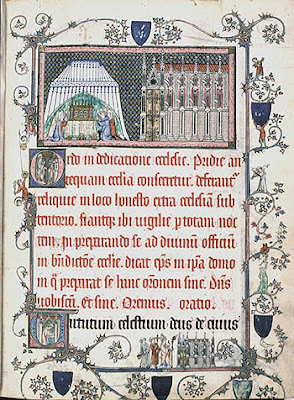 Ordo in dedicatione ecclesie. Pridie an
tequam ecclia consecretur. deferant
reliquie in loco honesto extra ecclesiam sub
tentorio. fiantqz ibi uigilie p totam noc
tem. In preparando se ad diuinum officium
in bndictoe ecclie. dicat eps in ipa domo
in q preparat se hanc oronem sine. Dns
uobiscum. Et sine. Oremus. oratio.
Uirtutum celestium deus de cuius